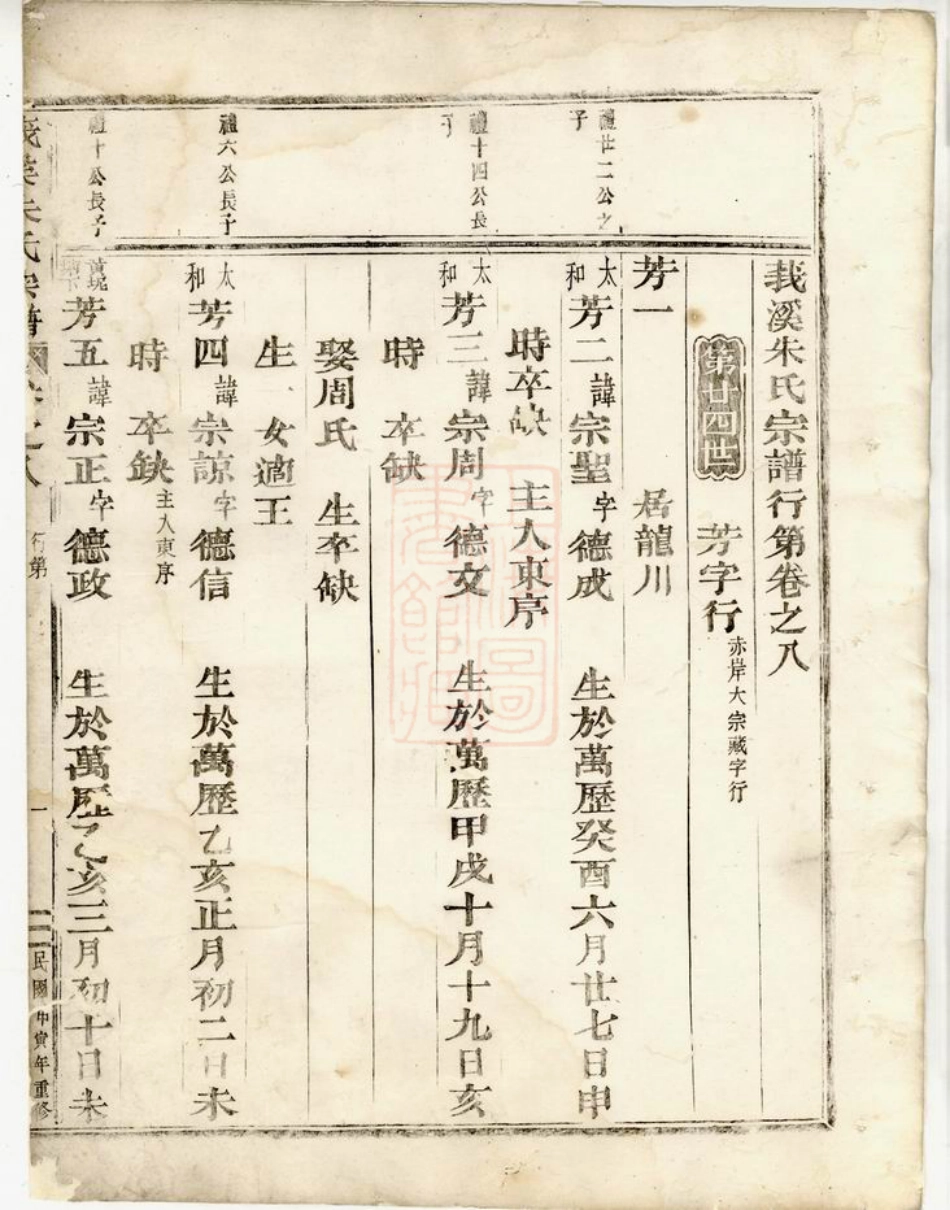 莪溪朱氏宗譜行第卷之八
第廿四世
芳字行
赤岸大宗藏字行
芳一 居龍川
禮廿二公之
子
太
和
芳二諱宗聖字德成 生於萬歷癸酉六月廿七日申
時卒缺 主人東序
禮十四公長
子
太
和
芳三諱宗周字德文 生於萬歷甲戌十月十九日亥
時 卒缺
娶周氏 生卒缺
生 女適王
禮六公長子
太
和
芳四諱宗諒字德信 生於萬歷乙亥正月初二日未
時 卒缺
主人東序
禮十公長子
芳五諱宗正字德政 生於萬歷乙亥三月初十日未
朱氏宗譜 之八
行第
一
民國甲寅年重修